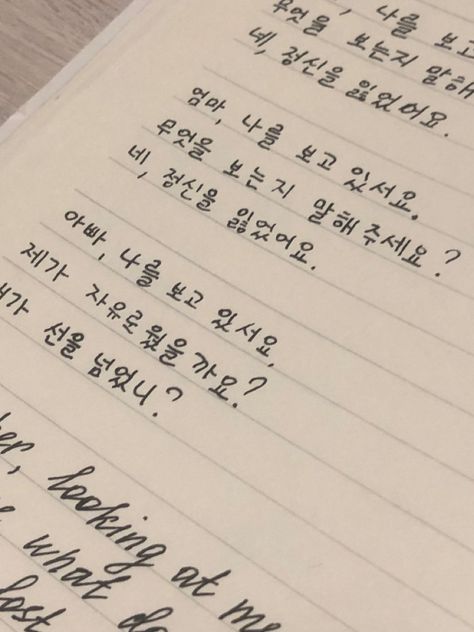 , 나를 보고
무엇을 보는지 말해
네, 정신을 잃었어요.
엄마, 나를 보고 있서요.
무엇을 보는지 말해주세요?
네, 정신을 잃었어요.
아빠, 나를 보고 있서요,
제가 자유로웠을 가요?
내가 선을 넘었니?
her, looking at me
what do
lost